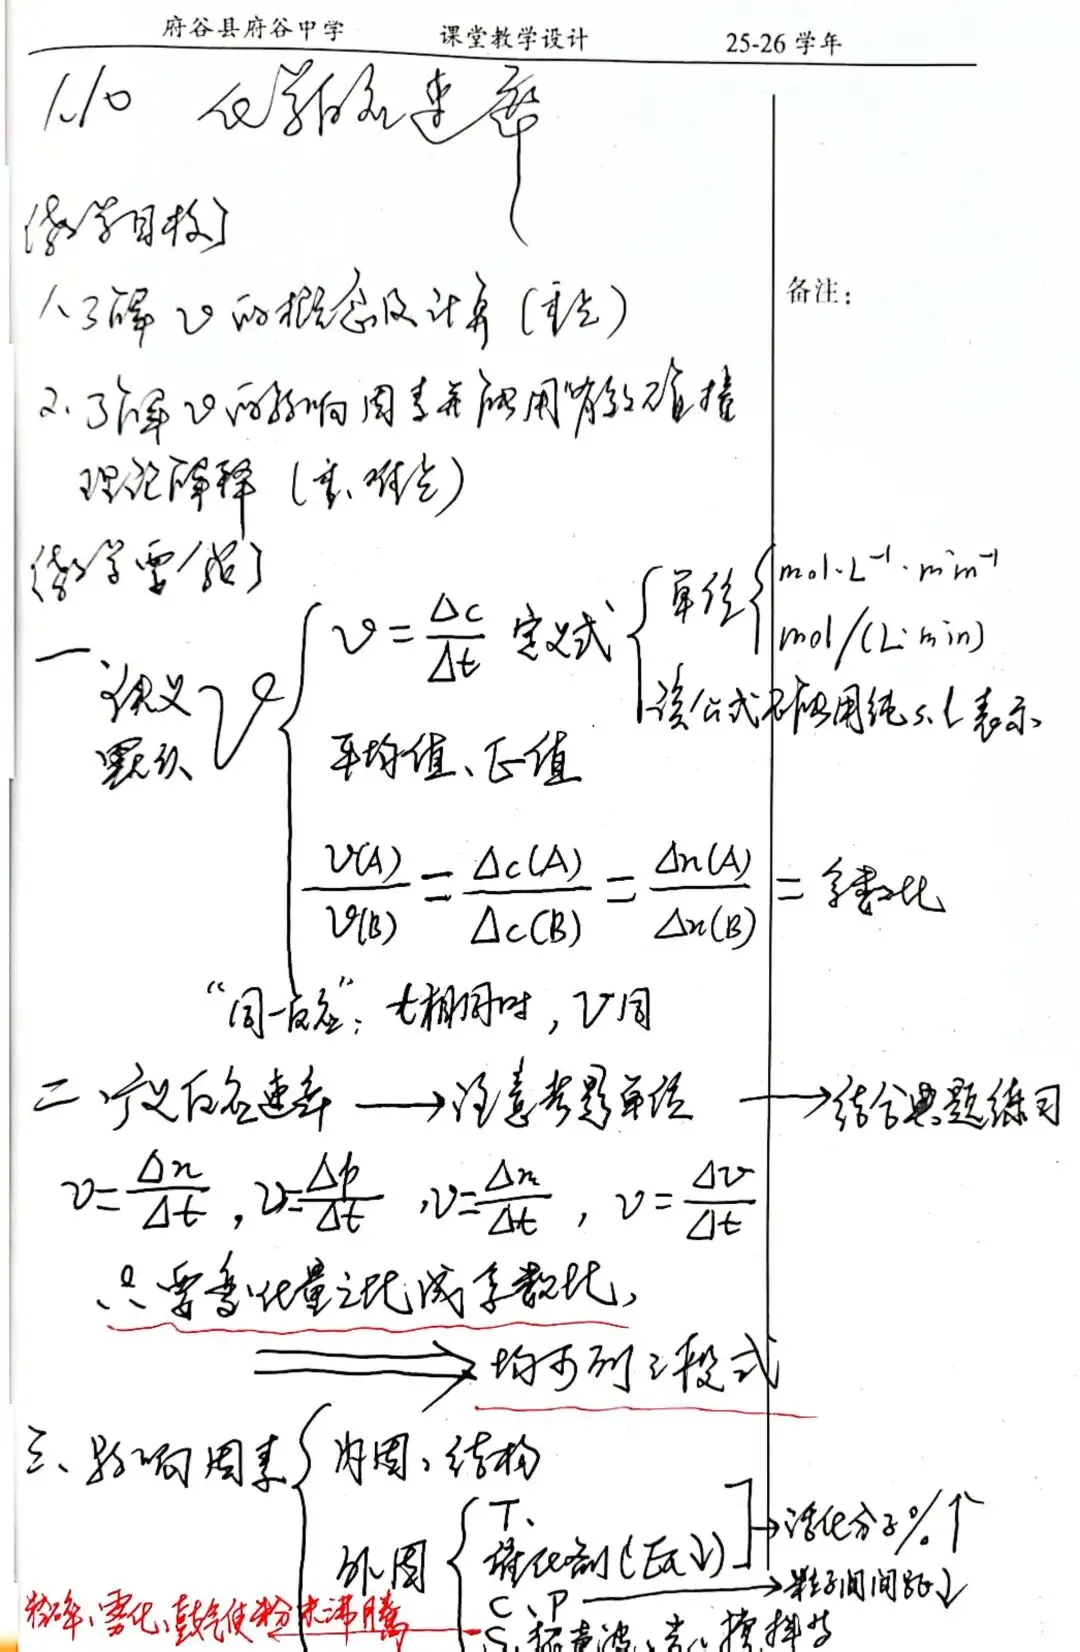 府谷县府谷中学 课堂教学设计 25-26 学年
1.10 化学反应速率
[教学目标]
备注：
1、了解 v 的概念及计算(重点)
2、了解 v 的影响因素并能用"有效碰撞
理论解释 (重、难点)
[教学
一、 v
v = Δc/Δt 定义式
单位
mol·L⁻¹·min⁻¹
mol/(L·min)
该公式不能用纯s、l表示
平均值、正值
v(A)/v(B) = Δc(A)/Δc(B) = Δn(A)/Δn(B) = 系数比
"同一反应"： t相同时，v同
二、广义反应速率 → 注意考题单位 → 结合典题练习
v=Δn/Δt , v=Δp/Δt , v=Δm/Δt , v=Δv/Δt
只需变化量之比成系数比，
⟹ 均可列三段式
三、影响因素
内因：结构
外因
T、
催化剂(Ea↓)
→ 活化分子%↑
C、P → 粒子间间距↓
粉碎、雾化、鼓气使粉末沸腾 S、超声波、光、搅拌等